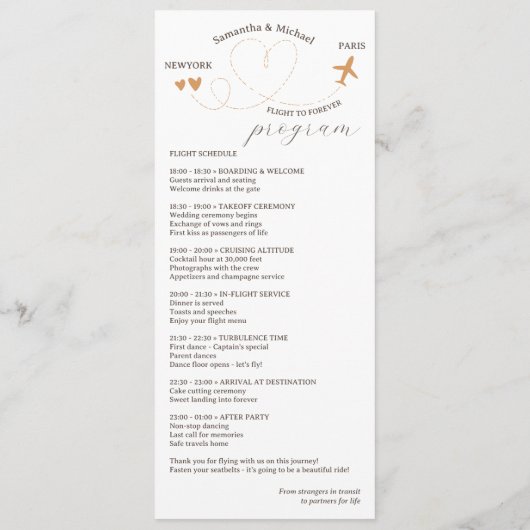 Samantha & Michael
PARIS
NEWYORK
FLIGHT TO FOREVER
program
FLIGHT SCHEDULE
18:00 - 18:30 » BOARDING & WELCOME
Guests arrival and seating
Welcome drinks at the gate
18:30 - 19:00 » TAKEOFF CEREMONY
Wedding ceremony begins
Exchange of vows and rings
First kiss as passengers of life
19:00 - 20:00 » CRUISING ALTITUDE
Cocktail hour at 30,000 feet
Photographs with the crew
Appetizers and champagne service
20:00 - 21:30 » IN-FLIGHT SERVICE
Dinner is served
Toasts and speeches
Enjoy your flight menu
21:30 - 22:30 » TURBULENCE TIME
First dance - Captain's special
Parent dances
Dance floor opens - let's fly!
22:30 - 23:00 » ARRIVAL AT DESTINATION
Cake cutting ceremony
Sweet landing into forever
23:00 - 01:00 » AFTER PARTY
Non-stop dancing
Last call for memories
Safe travels home
Thank you for flying with us on this journey!
Fasten your seatbelts - it's going to be a beautiful ride!
From strangers in transit
to partners for life